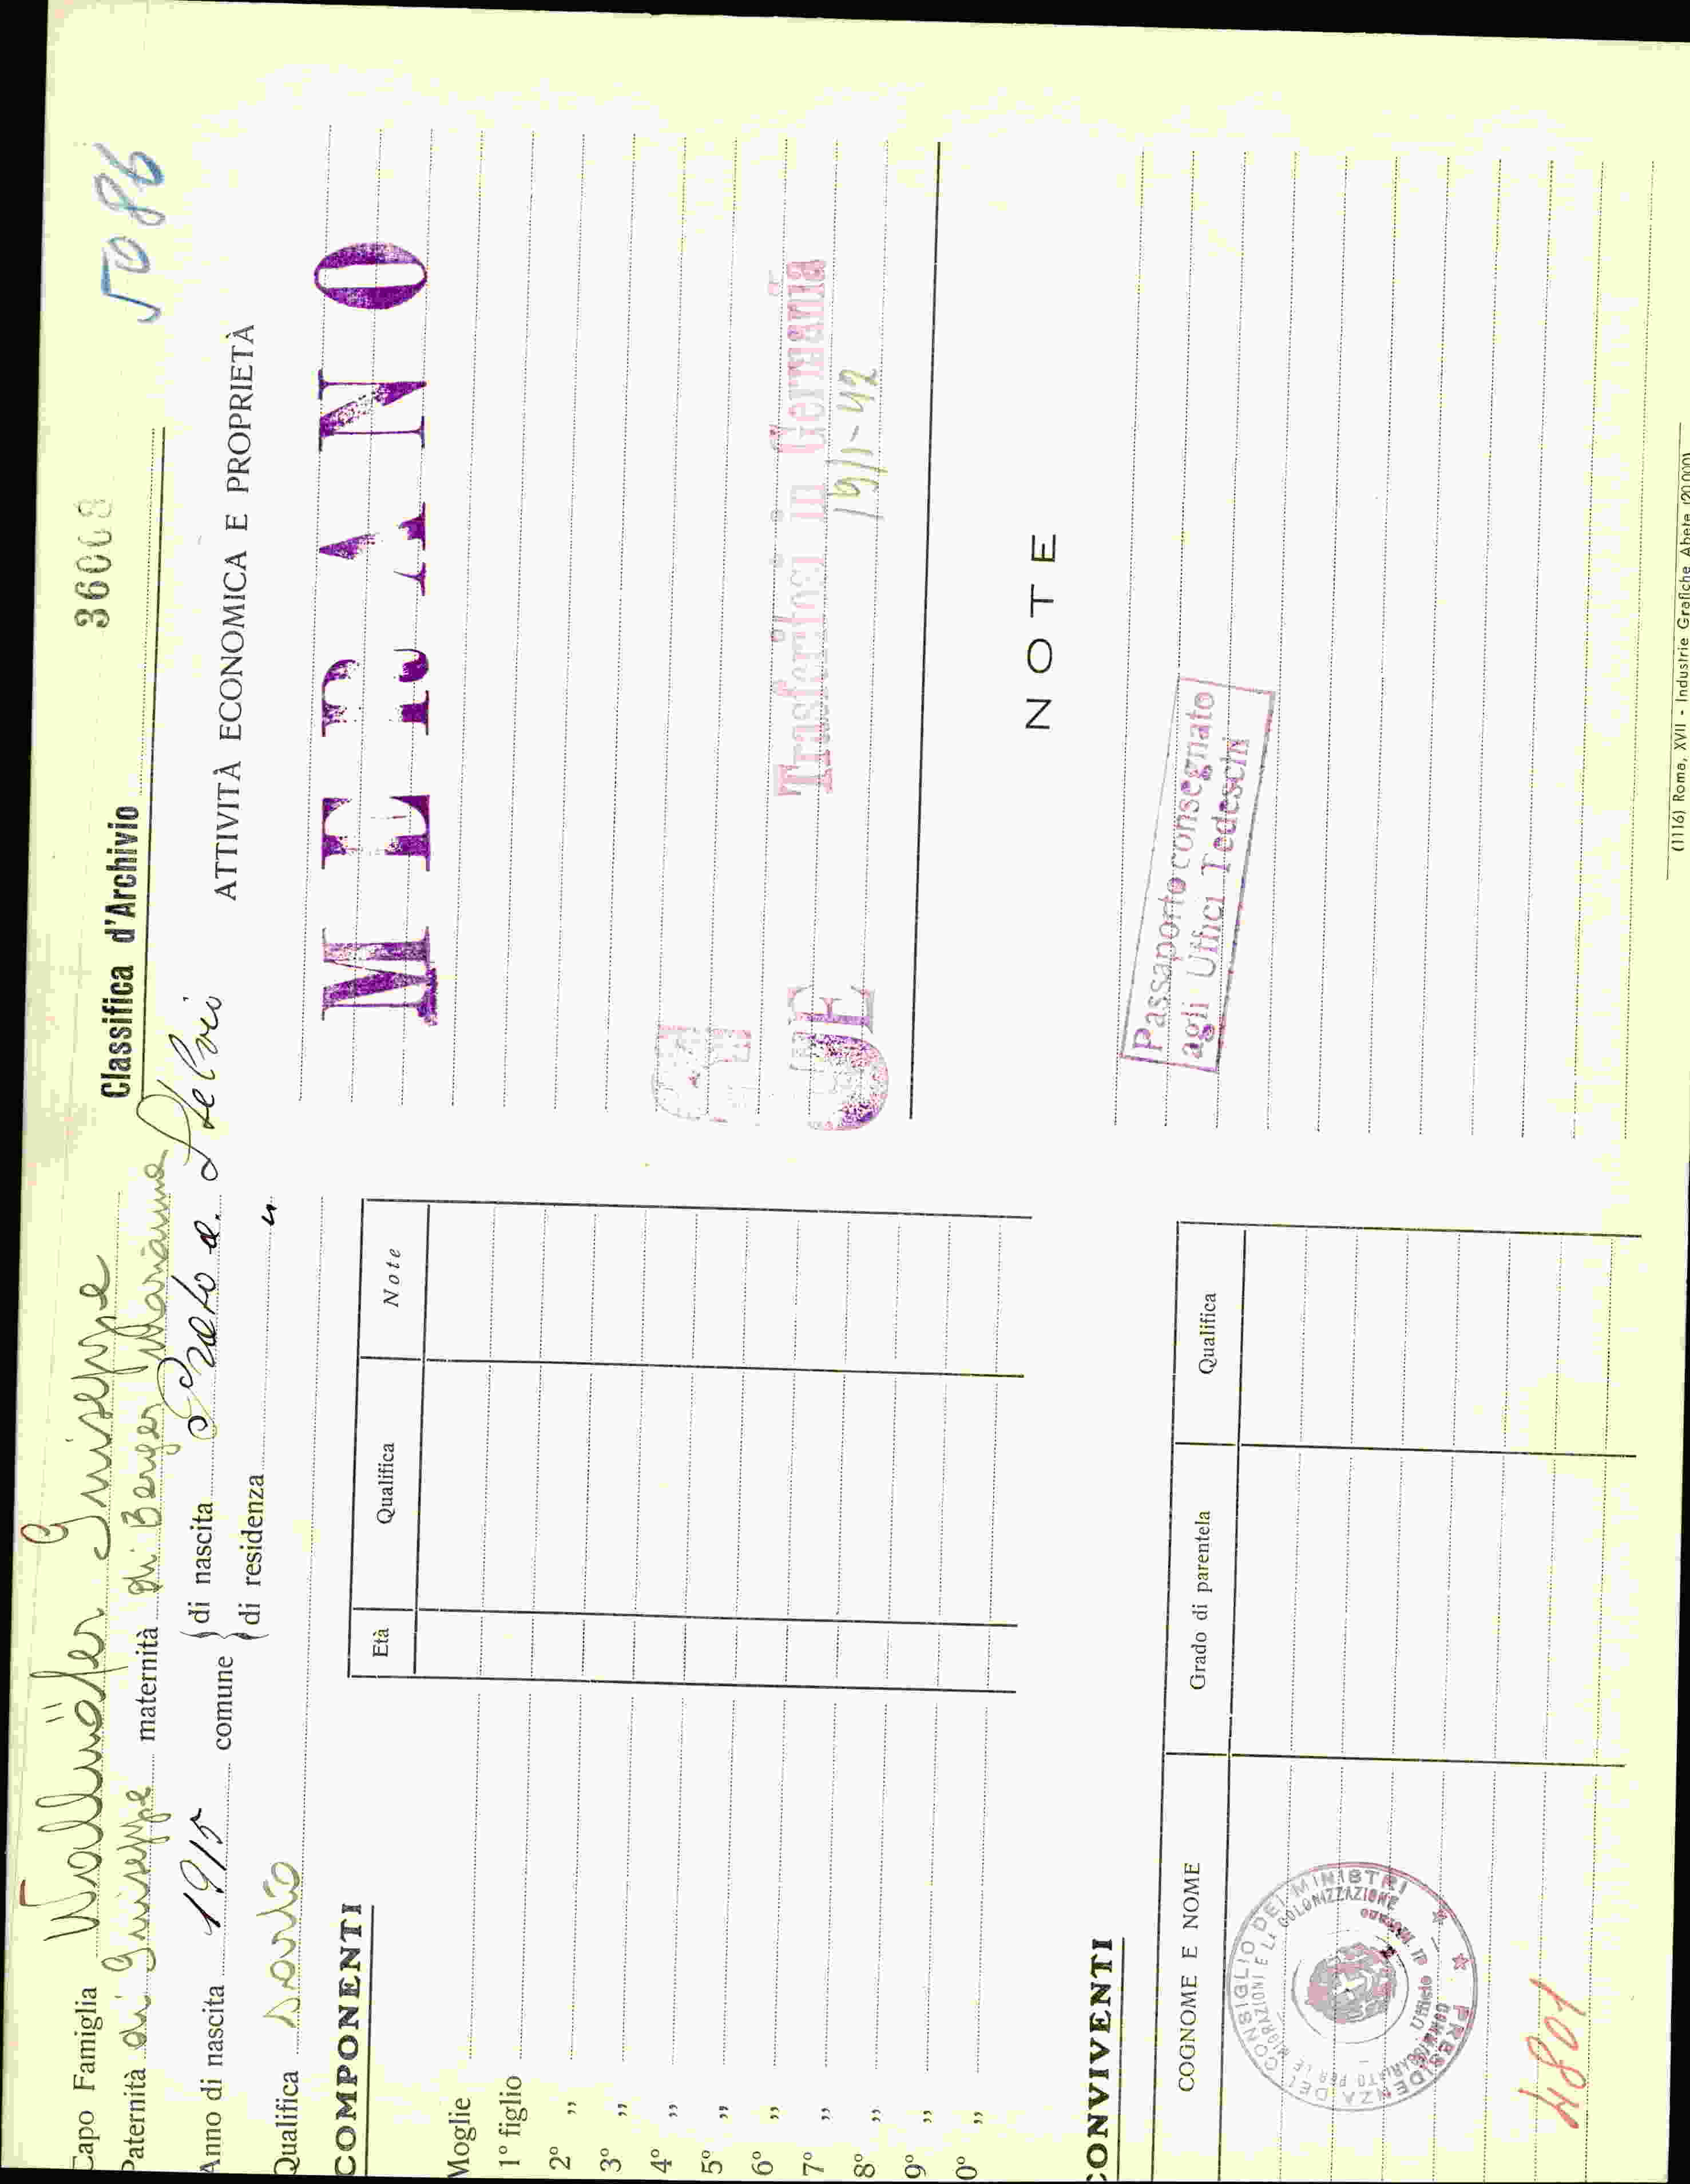 Capo Famiglia Wallnöfer Giuseppe
Classifica d'Archivio 36008
5086
Paternità di Giuseppe maternità di Berger Marianna
Anno di nascita 1915 comune } di nascita Prato a. Stelvi
di residenza "
Qualifica sarto
ATTIVITÀ ECONOMICA E PROPRIETÀ
MERANO
COMPONENTI
Età Qualifica Note
Moglie
1º figlio
2º „
3º „
4º „
5º „
6º „
7º „
8º „
9º „
0º „
Trasferitosi in Germania
19/1-42
NOTE
Passaporto consegnato
agli Uffici Tedeschi
CONVIVENTI
COGNOME E NOME Grado di parentela Qualifica
PRESIDENZA DEL CONSIGLIO DEI MINISTRI
COMMISSARIATO PER LE MIGRAZIONI E LA COLONIZZAZIONE
Ufficio di Merano
4801
(1116) Roma, XVII - Industrie Grafiche Abete (20.000)